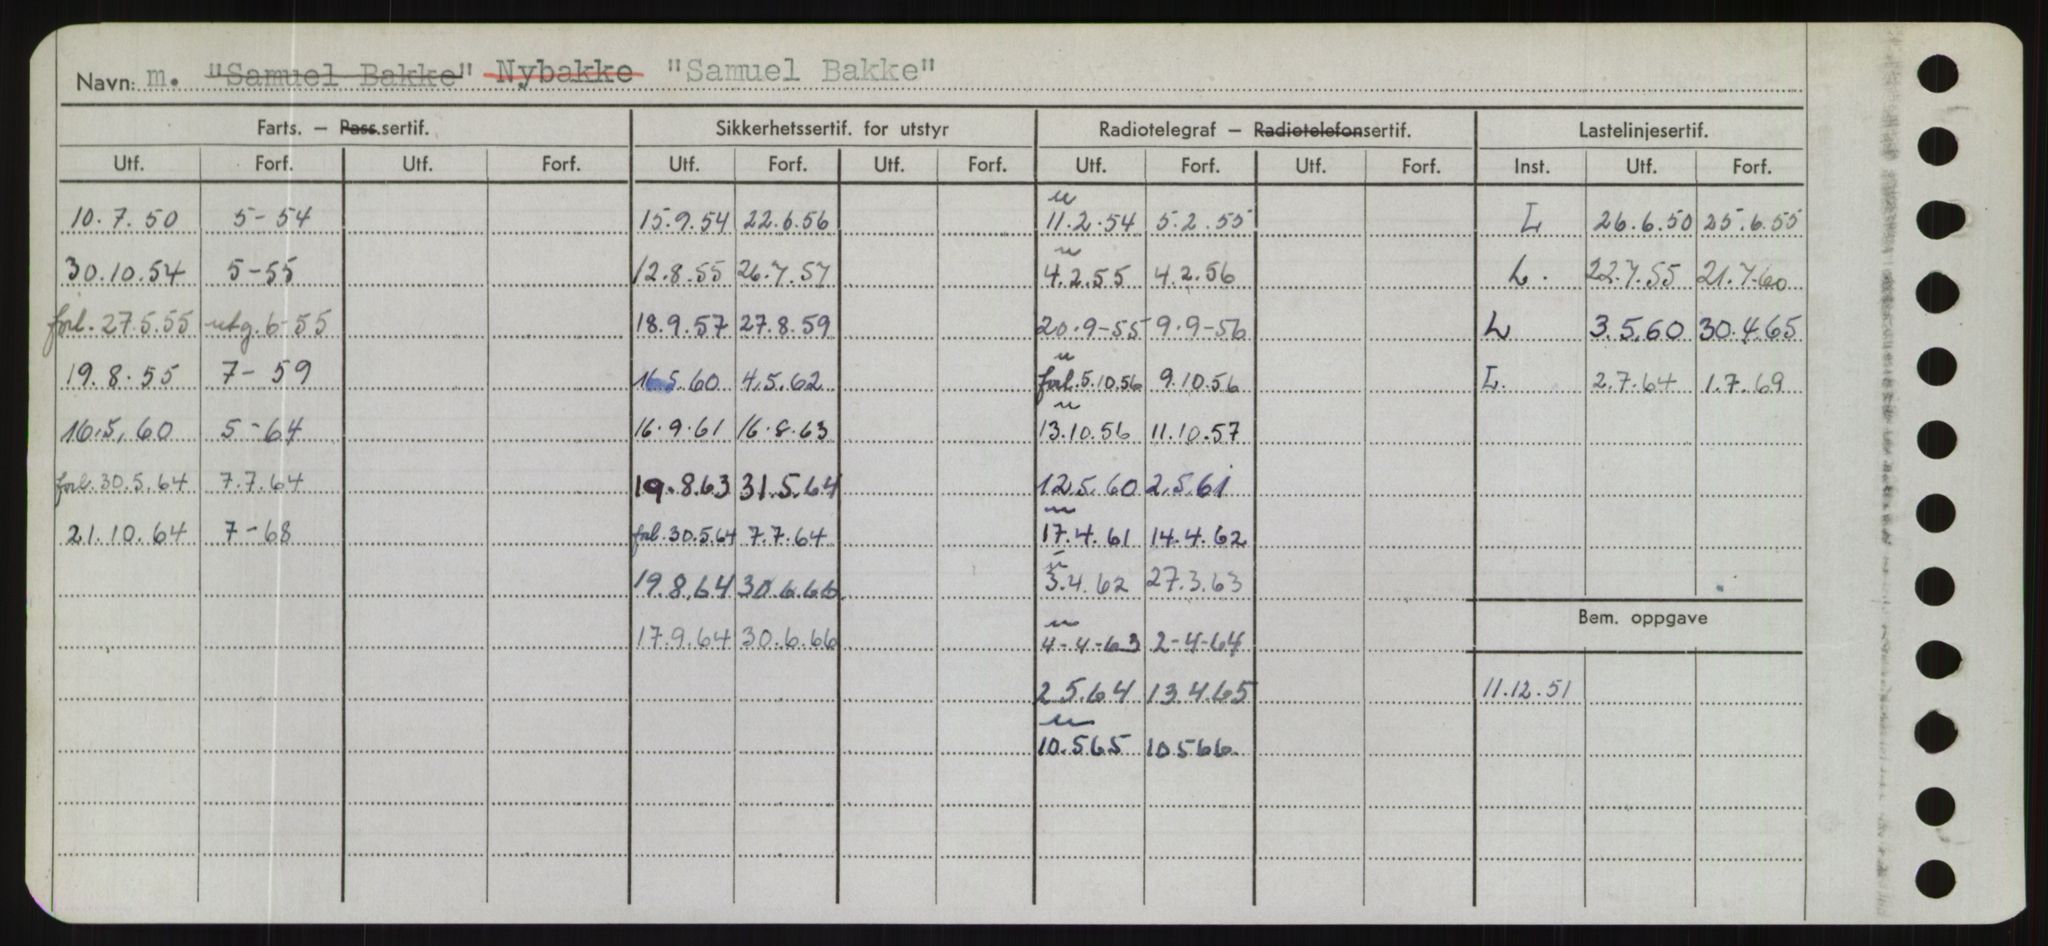 Navn: m. "Samuel Bakke" Nybakke "Samuel Bakke"
Farts. — Pass.sertif. Sikkerhetssertif. for utstyr Radiotelegraf — Radiotelefonsertif. Lastelinjesertif.
Utf. Forf. Utf. Forf. Utf. Forf. Utf. Forf. Utf. Forf. Utf. Forf. Inst. Utf. Forf.
10.7.50 5-54 15.9.54 22.6.56 u 11.2.54 5.2.55 L 26.6.50 25.6.55
30.10.54 5-55 12.8.55 26.7.57 u 4.2.55 4.2.56 L. 22.7.55 21.7-60
forl. 27.5.55 utg. 6-55 18.9.57 27.8.59 20.9-55 9.9-56 L 3.5.60 30.4.65
19.8.55 7-59 16.5.60 4.5.62 u forl. 5.10.56 9.10.56 L. 2.7.64 1.7.69
16.5.60 5-64 16.9.61 16.8.63 u 13.10.56 11.10.57
forl. 30.5.64 7.7.64 19.8.63 31.5.64 12.5.60 2.5.61
21.10.64 7-68 forl. 30.5.64 7.7.64 u 17.4.61 14.4.62
19.8.64 30.6.66 u 3.4.62 27.3.63
Bem. oppgave
17.9.64 30.6.66 u 4-4-63 2-4-64
2.5.64 13.4.65 11.12.51
u 10.5.65 10.5.66